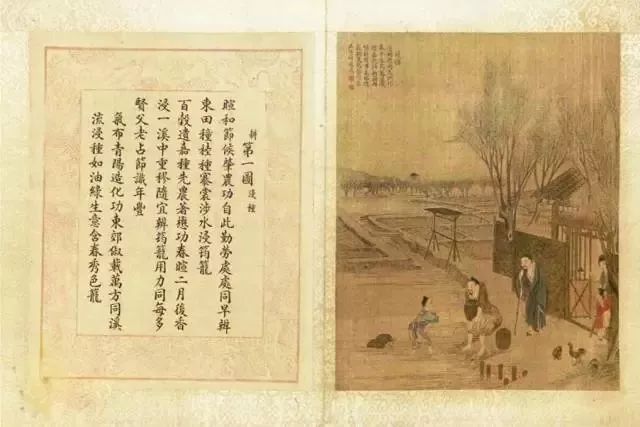 耕第一圖 浸種
暄和節候肇農功自此勤勞處處同早辦
東田穜稑種褰裳涉水浸筠籠
百穀遺嘉種先農著懋功春暄二月後香
浸一溪中重穋隨宜辨筠籠用力同每多
賢父老占節識年豐
氣布青陽造化功東郊俶載萬方同溪
流浸種如油綠生意含春秀色籠